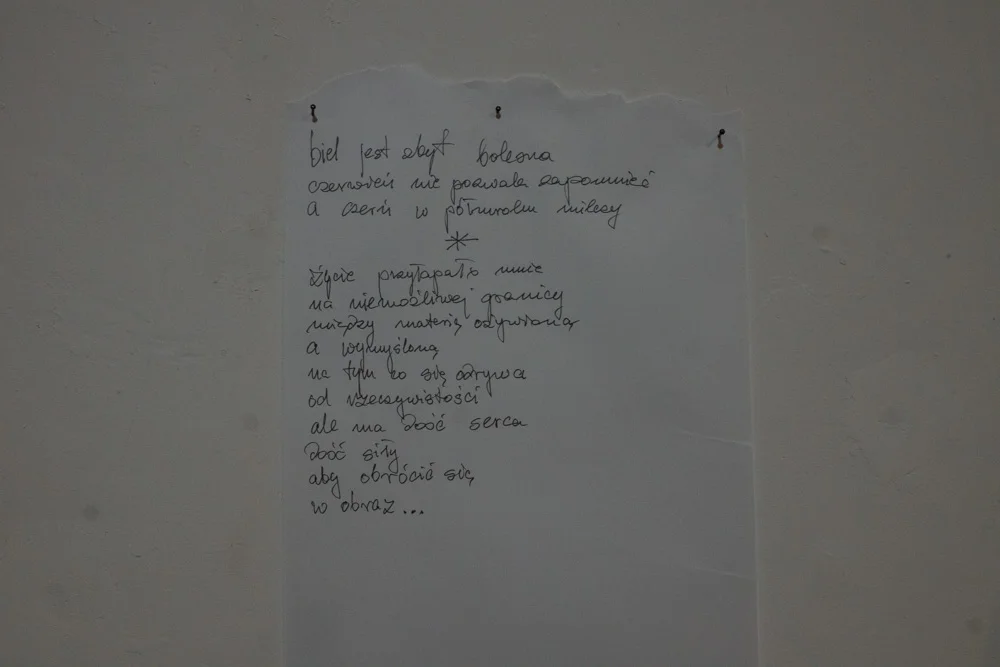 biel jest zbyt bolesna
czerwień nie pozwala zapomnieć
a czerń w półmroku milczy
*
Życie przyłapało mnie
na niemożliwej granicy
między materią ożywioną
a wymyśloną
na tym co się odrywa
od rzeczywistości
ale ma dość serca
dość siły
aby obrócić się
w obraz...